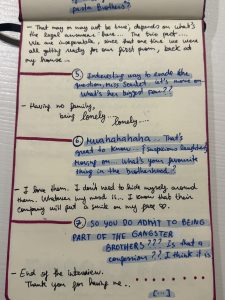 pasta Brothers?
- That may or may not be true, depends on what's
the legal answer here... The two part...
We are inseparable, since that one time we were
all getting ready for our first prom, back at
my house...
⑤ Interesting way to evade the
question, Miss Scarlet. Let's move on
what's her biggest fear??
- Having no family,
being lonely...
lonely....
⑥ Mwahahahaha... That's
great to know... (suspicious laughter)
Moving on... what's your favourite
thing in the brotherhood?
- I love them. I don't need to hide myself around
them. Whatever my mood is... I know that their
company will put a smile on my face ♡
⑦ SO YOU DO ADMIT TO BEING
PART OF THE GANGSTER
BROTHERS??? Is that a
confession?? I think it is
- End of the interview.
Thank you for having me..
[...]